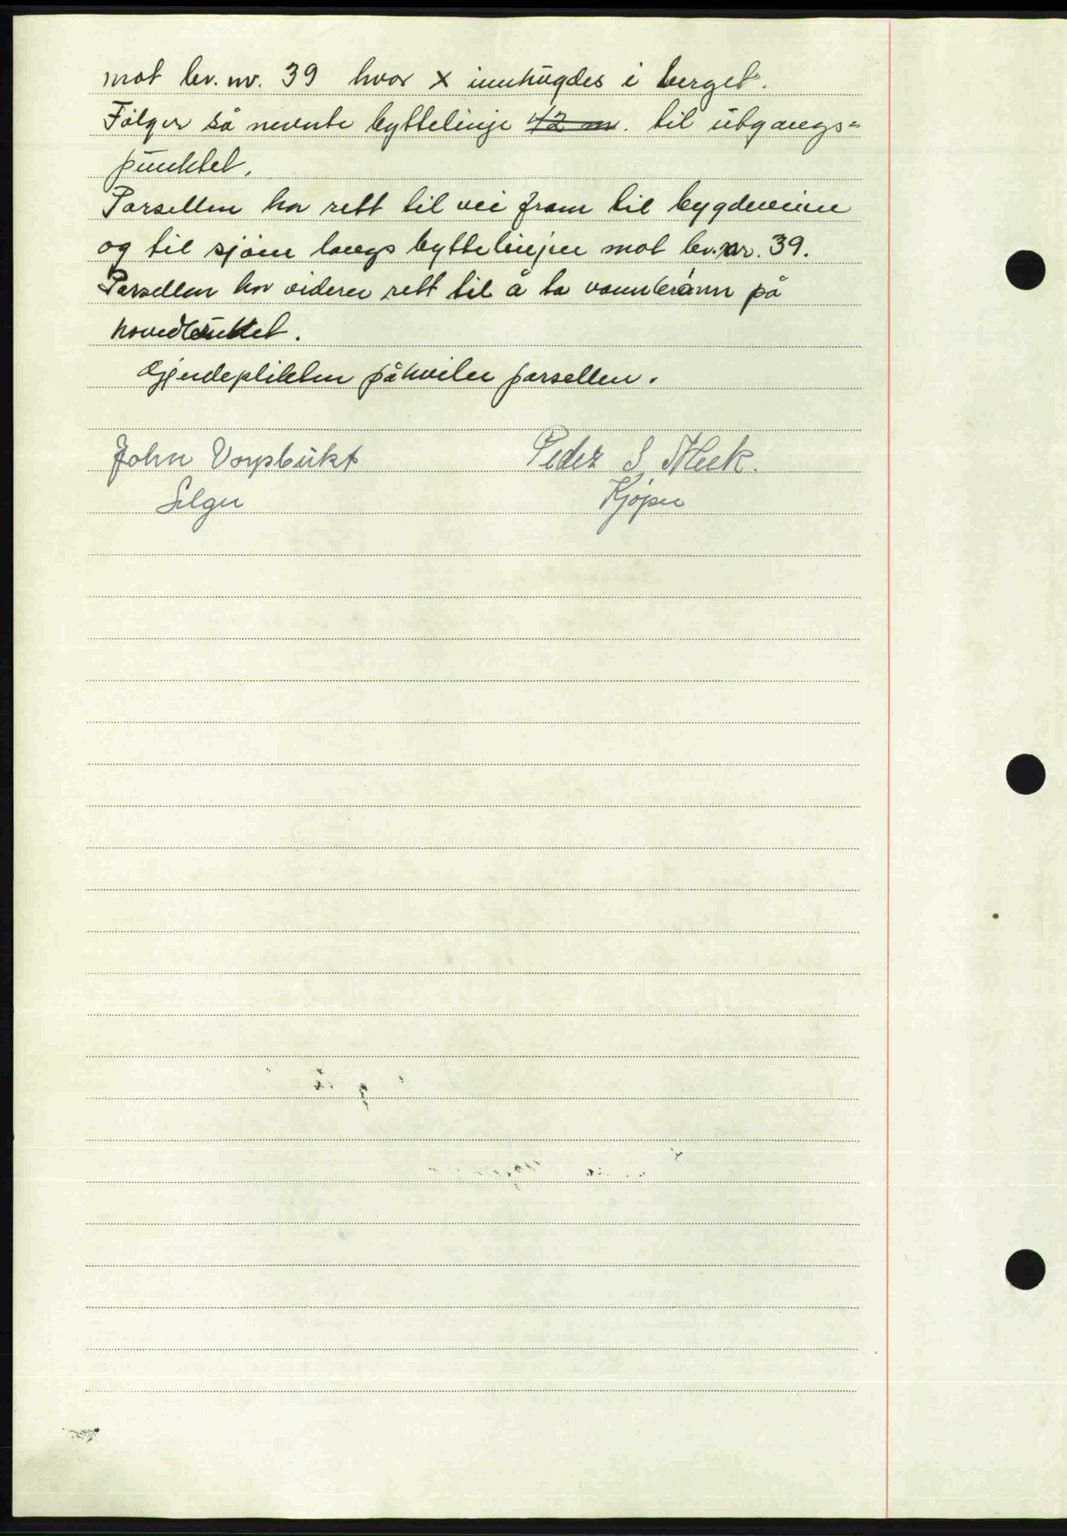 mot br. nr. 39 hvor x innhugdes i berget.
Følger så nevnte byttelinje 42 m. til utgangs=
punktet.
Parsellen har rett til vei fram til bygdeveien
og til sjøen langs byttelinjen mot br. nr. 39.
Parsellen har videre rett til å ta vannbrønn på
hovedbruket.
Gjerdeplikten påhviler parsellen.
John Vorpbukt Peder S.
Selger Kjøper